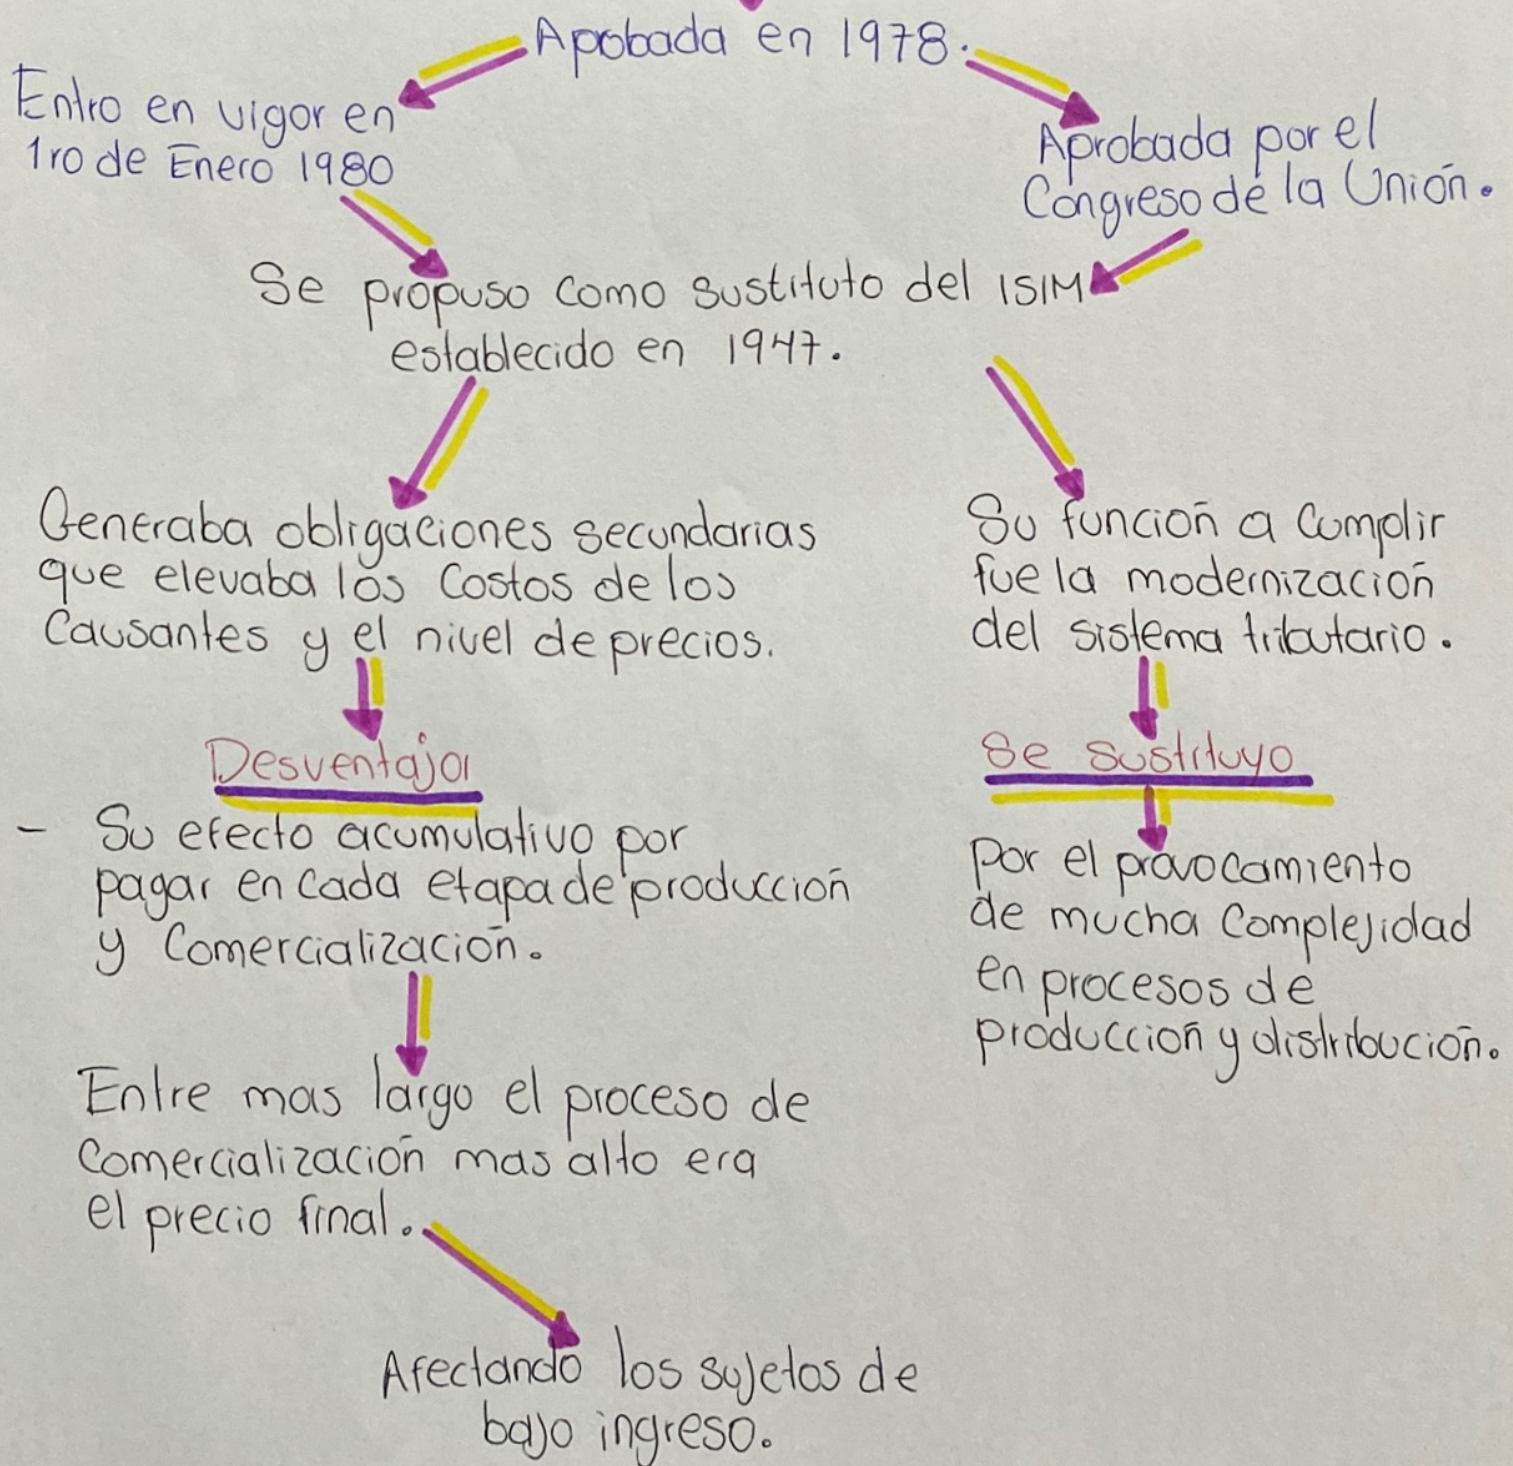 Apobada en 1978.
Entro en vigor en
1ro de Enero 1980
Aprobada por el
Congreso de la Unión.
Se propuso como sustituto del ISIM
establecido en 1947.
Generaba obligaciones secundarias
que elevaba los costos de los
Causantes y el nivel de precios.
Desventaja
- Su efecto acumulativo por
pagar en cada etapa de producción
y Comercialización.
Entre mas largo el proceso de
Comercialización mas alto era
el precio final.
Afectando los sujetos de
bajo ingreso.
Su función a cumplir
fue la modernización
del sistema tributario.
Se sustituyo
Por el provocamiento
de mucha complejidad
en procesos de
producción y distribución.